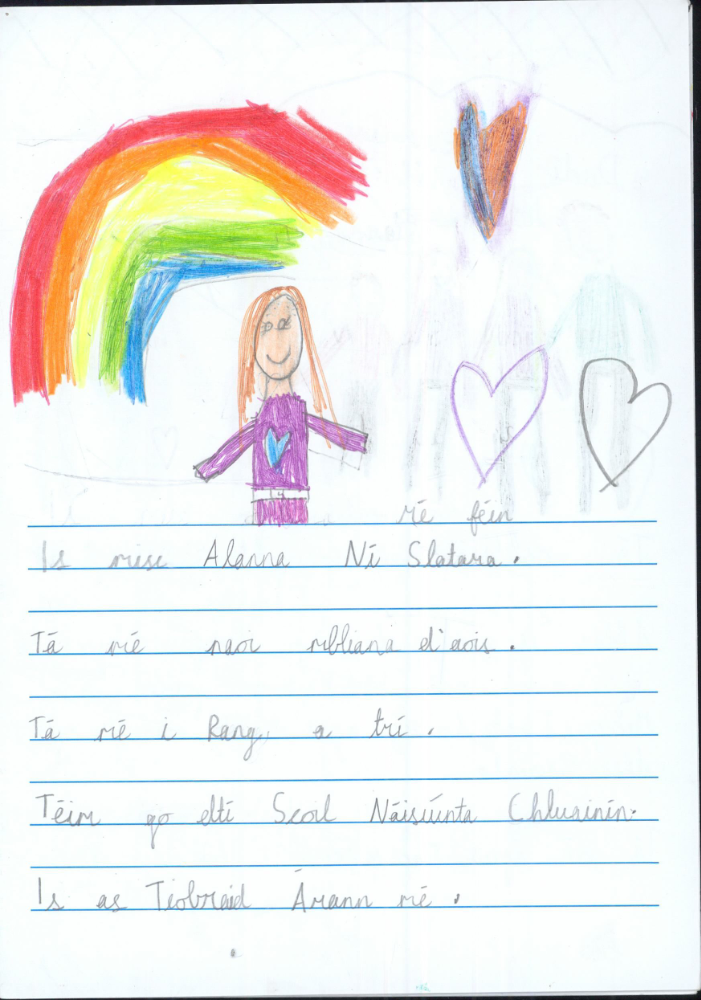 mé féin
Is mise Alanna Ní Slatara.
Tá mé naoi mbliana d'aois.
Tá mé i Rang a trí.
Téim go dtí Scoil Náisiúnta Chluainín.
Is as Tiobraid Árann mé.